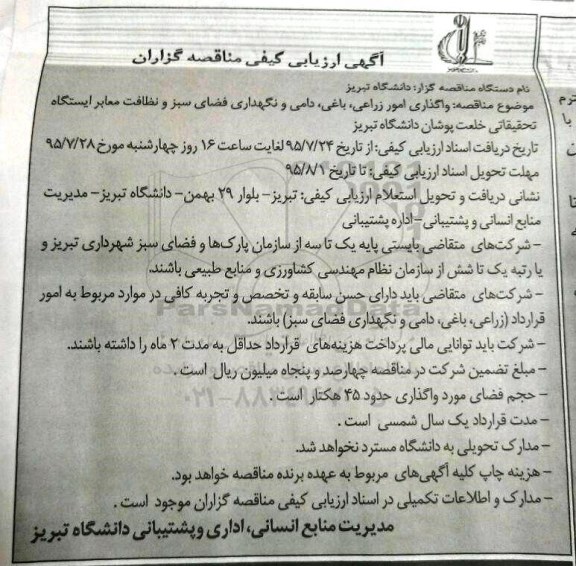 آگهی ارزیابی کیفی مناقصه گزاران
نام دستگاه مناقصه گزار: دانشگاه تبریز
موضوع مناقصه: واگذاری امور زراعی، باغی، دامی و نگهداری فضای سبز و نظافت معابر ایستگاه
تحقیقاتی خلعت پوشان دانشگاه تبریز
تاریخ دریافت اسناد ارزیابی کیفی: از تاریخ ۹۵/۷/۲۴ لغایت ساعت ۱۶ روز چهارشنبه مورخ ۹۵/۷/۲۸
مهلت تحویل اسناد ارزیابی کیفی: تا تاریخ ۹۵/۸/۱
نشانی دریافت و تحویل استعلام ارزیابی کیفی: تبریز – بلوار ۲۹ بهمن – دانشگاه تبریز – مدیریت
منابع انسانی و پشتیبانی – اداره پشتیبانی
– شرکت‌های متقاضی بایستی پایه یک تا سه از سازمان پارک‌ها و فضای سبز شهرداری تبریز و
یا رتبه یک تا شش از سازمان نظام مهندسی کشاورزی و منابع طبیعی باشند.
– شرکت‌های متقاضی باید دارای حسن سابقه و تخصص و تجربه کافی در موارد مربوط به امور
قرارداد (زراعی، باغی، دامی و نگهداری فضای سبز) باشند.
– شرکت باید توانایی مالی پرداخت هزینه‌های قرارداد حداقل به مدت ۲ ماه را داشته باشند.
– مبلغ تضمین شرکت در مناقصه چهارصد و پنجاه میلیون ریال است .
– حجم فضای مورد واگذاری حدود ۴۵ هکتار است .
– مدت قرارداد یک سال شمسی است .
– مدارک تحویلی به دانشگاه مسترد نخواهد شد.
– هزینه چاپ کلیه آگهی‌های مربوط به عهده برنده مناقصه خواهد بود.
– مدارک و اطلاعات تکمیلی در اسناد ارزیابی کیفی مناقصه گزاران موجود است .
مدیریت منابع انسانی، اداری و پشتیبانی دانشگاه تبریز